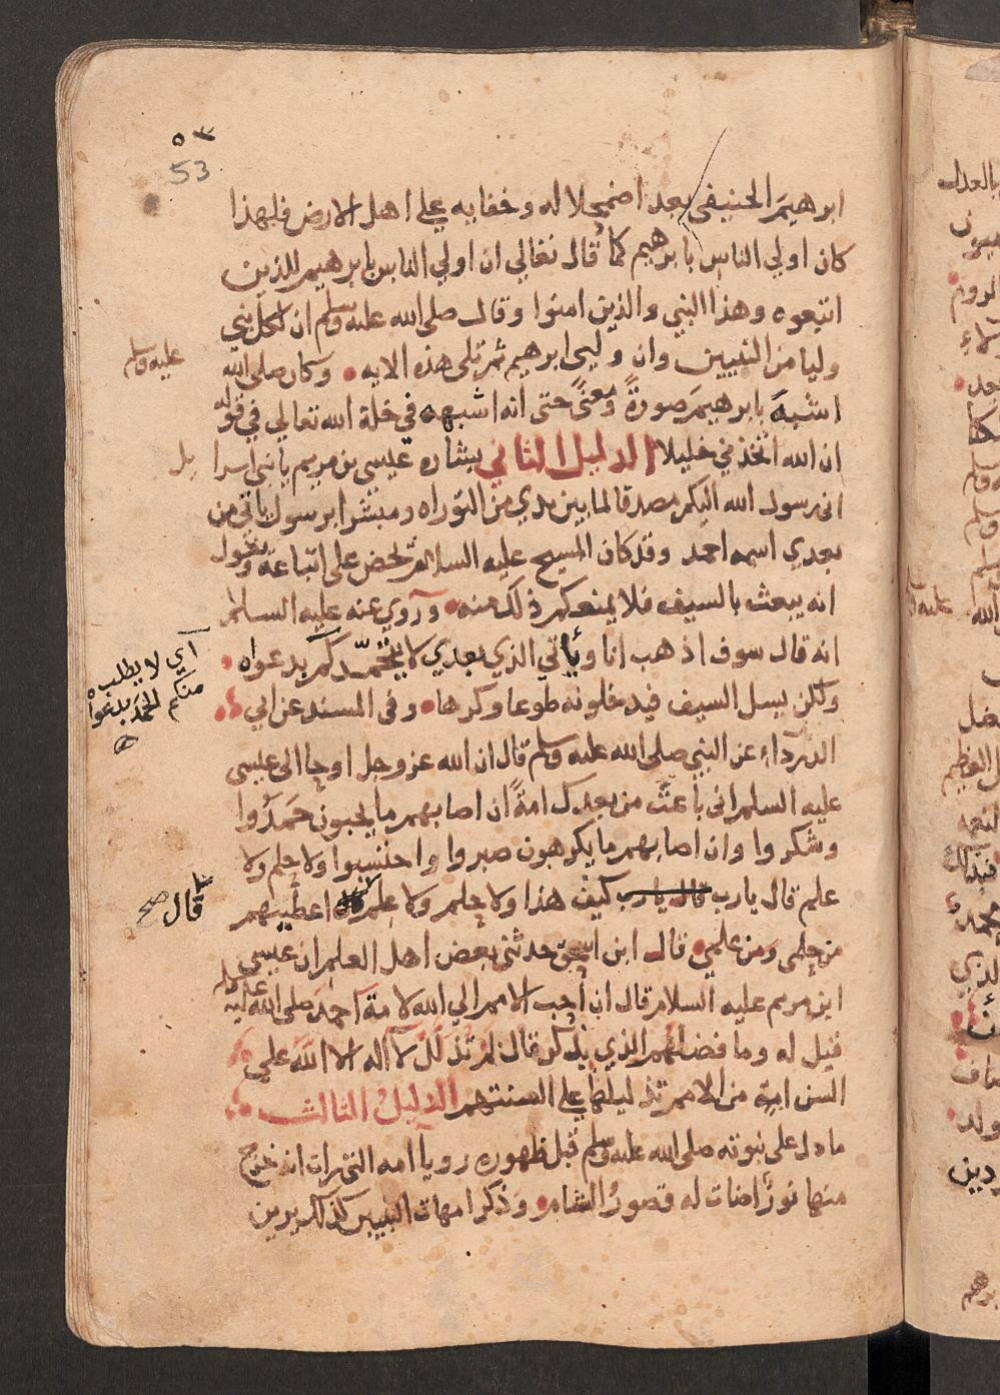 ٥٣
53
ابرهيمَ الحنيفي بعد اضمحلاله وخفايه علي اهل الارض فلهذا
كان اولي الناس بابرهيم كما قال تعالي ان اولي الناس بابرهيم للذين
اتبعوه وهذا النبي والذين امنوا وقال صلى الله عليه وسلم ان لكل نبي
وليا من النبيين وان وليي ابرهيم ثم تلى هذه الايه وكان صلى الله
عليه وسلم
اشبهَ بابرهيمَ صورةً ومعنًى حتى انه اشبهه في خلة الله تعالي في قوله
ان الله اتخذني خليلا الدليل الثاني بشاره عيسى بن مريم يا بني اسرا
يل
اني رسول الله اليكم مصدقا لما بين يدي من التوراه ومبشرا برسول ياتي من
بعدي اسمه احمد وقد كان المسيح عليه السلام يحض على اتباعه ويقول
انه يبعث بالسيف فلا يمنعكم ذلك منه وروي عنه عليه السلام
انه قال سوف اذهب انا وياتي الذي بعدي لا يتحمدكم بدعواه
اي لا يطلب
منكم الحمد بدعواه
ولكن يسل السيف فيدخلونه طوعا وكرها وفي المسند عن ابي
الدرداء عن النبي صلى الله عليه وسلم قال ان الله عز وجل اوحا الى عيسى
عليه السلم اني باعث من بعدك امةً ان اصابهم ما يحبون حَمَدُوا
وشكروا وان اصابهم ما يكرهون صبروا واحتسبوا ولا حلم ولا
علم قال يارب قال يارب كيف هذا ولا حلم ولا علم اعطيهم
قال صح
من حلمي ومن علمي قال ابن اسحق حدثني بعض اهل العلم ان عيسى
ابن مريم عليه السلام قال ان احب الامم الي الله لامة احمدَ صلى الله عليه وسلم
قيل له وما فضلهم الذي يذكر قال لم تذلل لا اله الا الله علي
السن امة من الامم تذليلها علي السنتهم الدليل الثالث
ما دل على نبوته صلى الله عليه وسلم قبل ظهوره رويا امه التي رات انه خرج
منها نورٌ اضات له قصورُ الشام وذكر امهات النبيين كذلك يرين